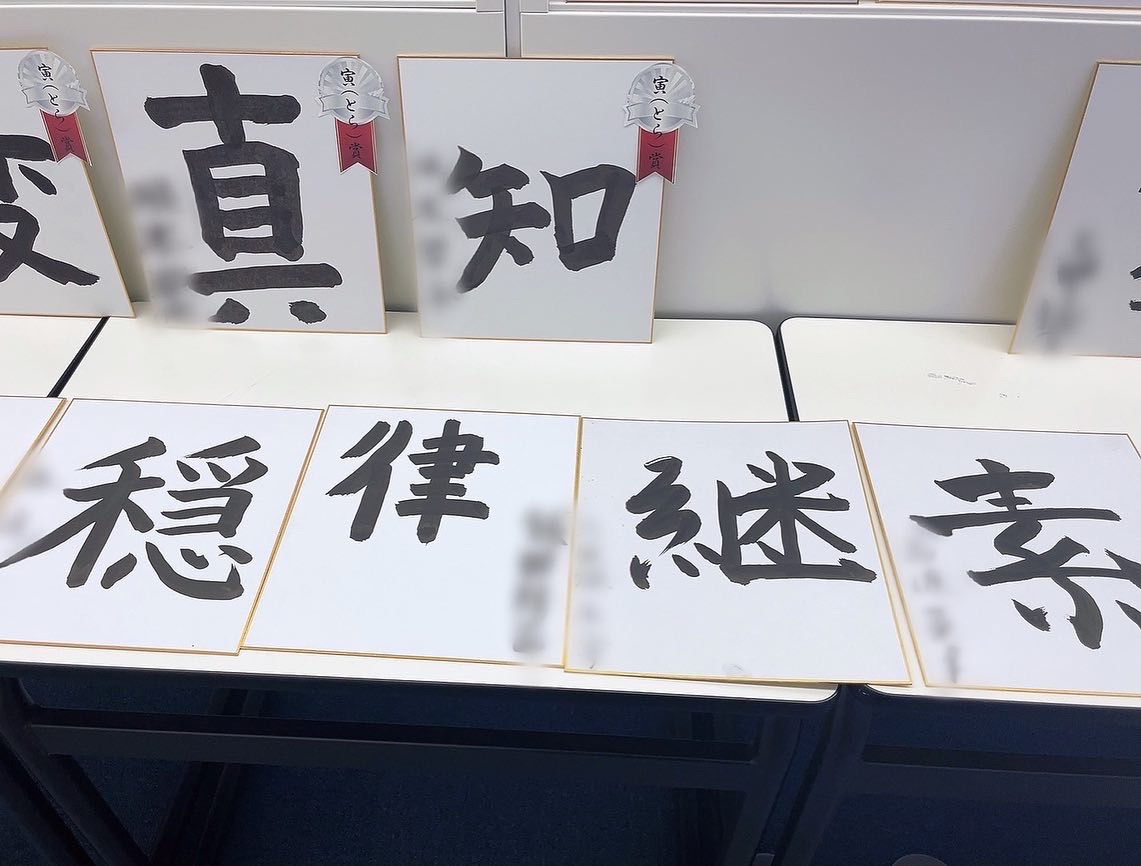 変
寅(とら)賞
真
寅(とら)賞
知
寅(とら)賞
穏
律
継
素